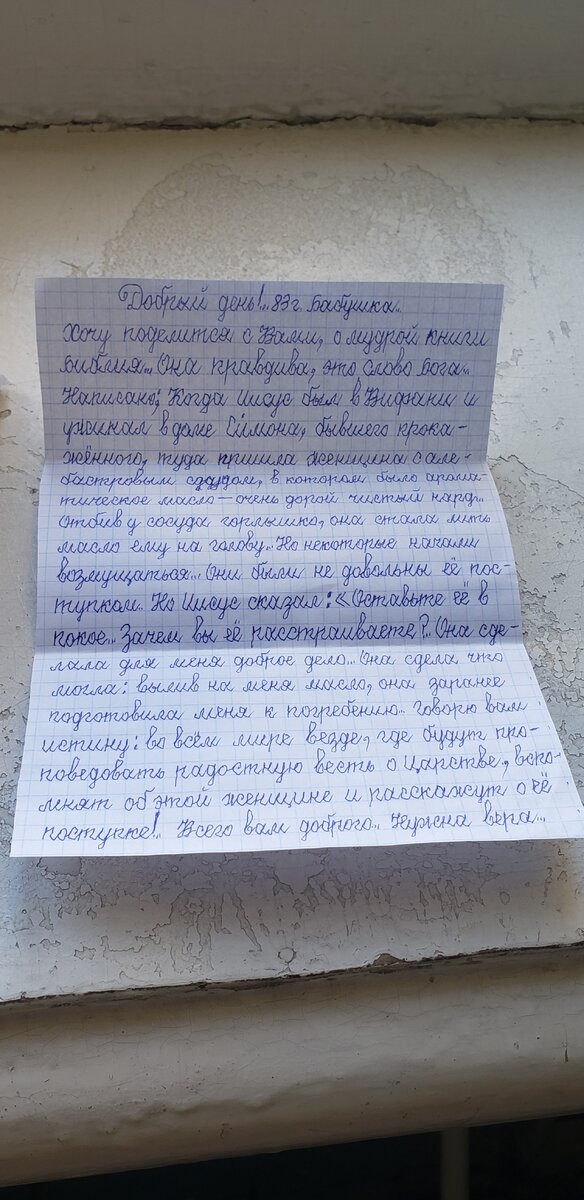 Добрый день!.. 83 г. бабушка..
Хочу поделится с Вами, о мудрой книги
Библия.. Она правдива, это слово Бога..
Написано; Когда Иисус был в Вифани и
ужинал в доме Симона, бывшего прока-
жённого, туда пришла женщина с але-
бастровым сосудом, в котором было арома-
тическое масло — очень дорой чистый нард..
Отбив у сосуда горлышко, она стала лить
масло ему на голову.. Но некоторые начали
возмущаться.. Они были не довольны её пос-
тупком.. Но Иисус сказал: «Оставьте её в
покое.. Зачем вы её расстраиваете?.. Она сде-
лала для меня доброе дело.. Она сдела что
могла: вылив на меня масло, она заранее
подготовила меня к погребению.. Говорю вам
истину: во всём мире везде, где будут про-
поведовать радостную весть о Царстве, вспо-
мнят об этой женщине и расскажут о её
поступке!.. Всего вам доброго.. Нужна вера...